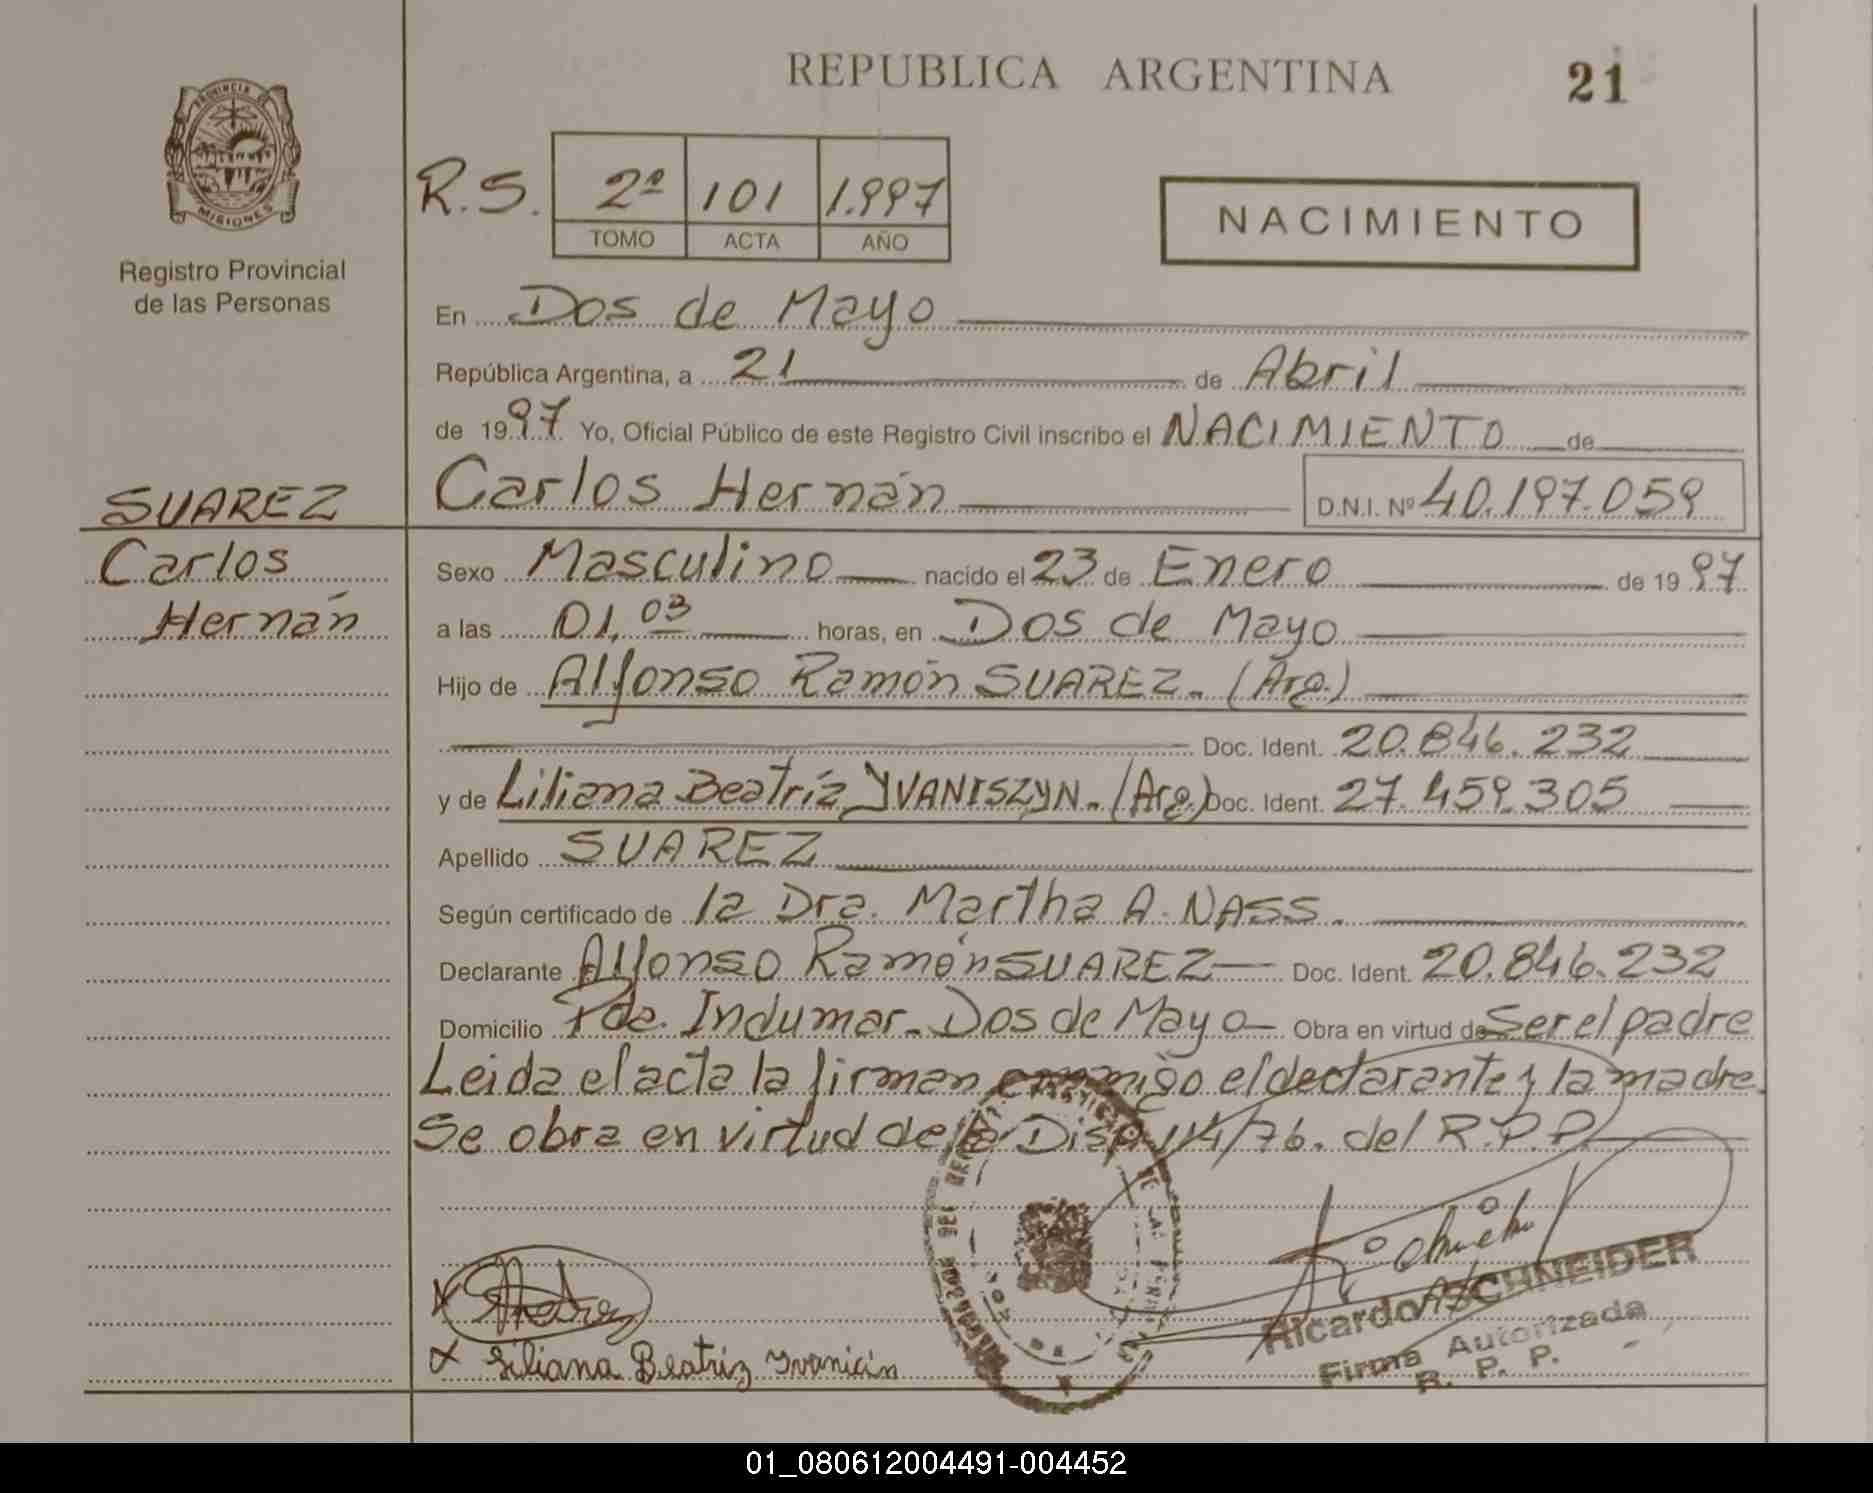 REPUBLICA ARGENTINA
21
PROVINCIA DE
MISIONES
Registro Provincial
de las Personas
R.S.
2º 101 1.997
TOMO ACTA AÑO
NACIMIENTO
En Dos de Mayo
República Argentina, a 21 de Abril
de 1997 Yo, Oficial Público de este Registro Civil inscribo el NACIMIENTO de
SUAREZ
Carlos Hernán D.N.I. Nº 40.197.059
Carlos
Hernán
Sexo Masculino nacido el 23 de Enero de 1997
a las 01,03 horas, en Dos de Mayo
Hijo de Alfonso Ramón SUAREZ. (Arg.)
Doc. Ident. 20.846.232
y de Liliana Beatríz YVANISZYN. (Arg.) Doc. Ident. 27.459.305
Apellido SUAREZ
Según certificado de la Dra. Martha A. NASS.
Declarante Alfonso Ramón SUAREZ Doc. Ident. 20.846.232
Domicilio Pde. Indumar. Dos de Mayo Obra en virtud de Ser el padre
Leida el acta la firman conmigo el declarante y la madre.
Se obra en virtud de la Disp. 114/76. del R.P.P.
Ricardo SCHNEIDER
Firma Autorizada
R. P. P.
x Liliana Beatriz Yvanicin
01_080612004491-004452